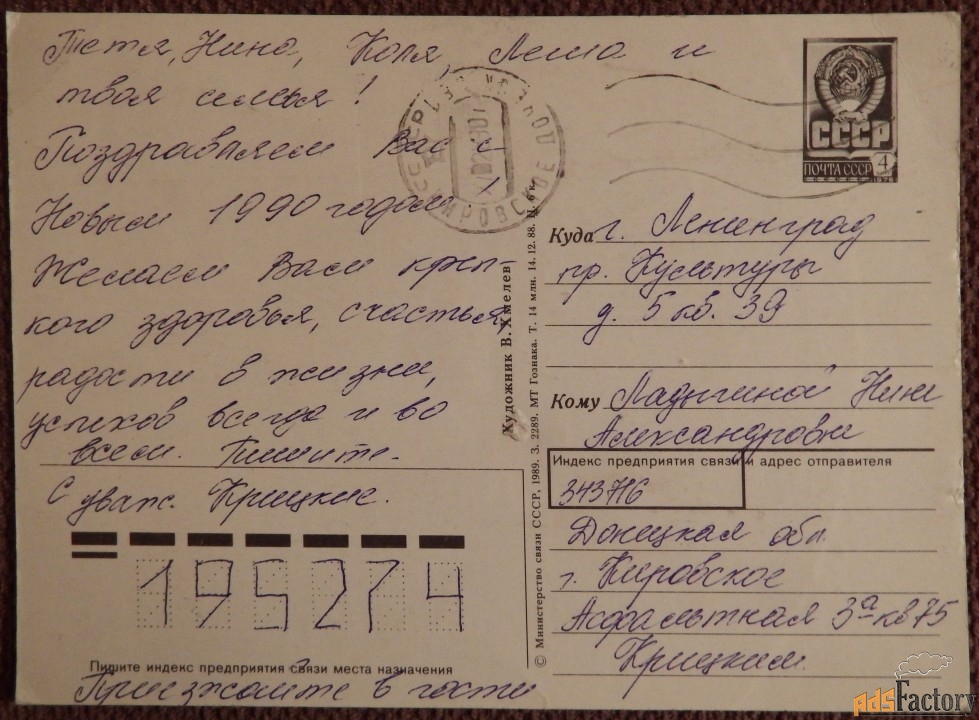 Тетя, Нина, Коля, Леша и
твоя семья!
Поздравляем Вас с
Новым 1990 годом!
Желаем Вам креп-
кого здоровья, счастья,
радости в жизни,
успехов всегда и во
всем. Пишите.
С уваж. Крицкие.
195274
Пишите индекс предприятия связи места назначения
Приезжайте в гости
© Министерство связи СССР, 1989. З. 2289. МТ Гознака. Т. 14 млн. 14.12.88. Ц. 6 к.
Художник В. Хмелев
СССР
ПОЧТА СССР 4
1976
Куда г. Ленинград
пр. Культуры
д. 5 кв. 39
Кому Ладыгиной Нине
Александровне
Индекс предприятия связи и адрес отправителя
343716
Донецкая обл
г. Кировское
Асфальтная 3а-кв 75
Крицким.
adsFactory